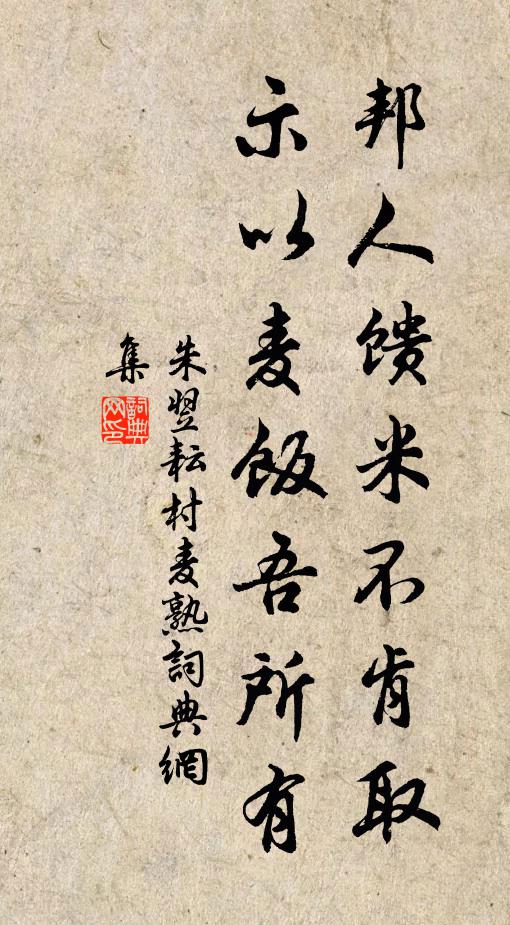 邦人馈米不肯取
示以麦饭吾所有
朱翌耘村麦熟詞典網
集
詞典网印